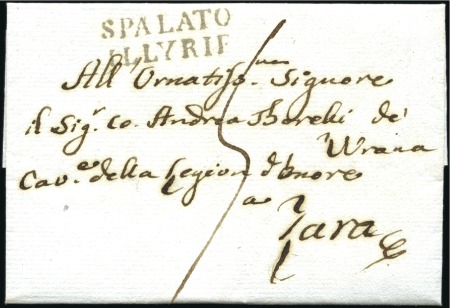 SPALATO
ILLYRIE
All' Ornatiss.mo Signore
il Sig.r Co. Andrea Borelli de'
Wrana
Cav.e della Legion d'onore
a
Zara